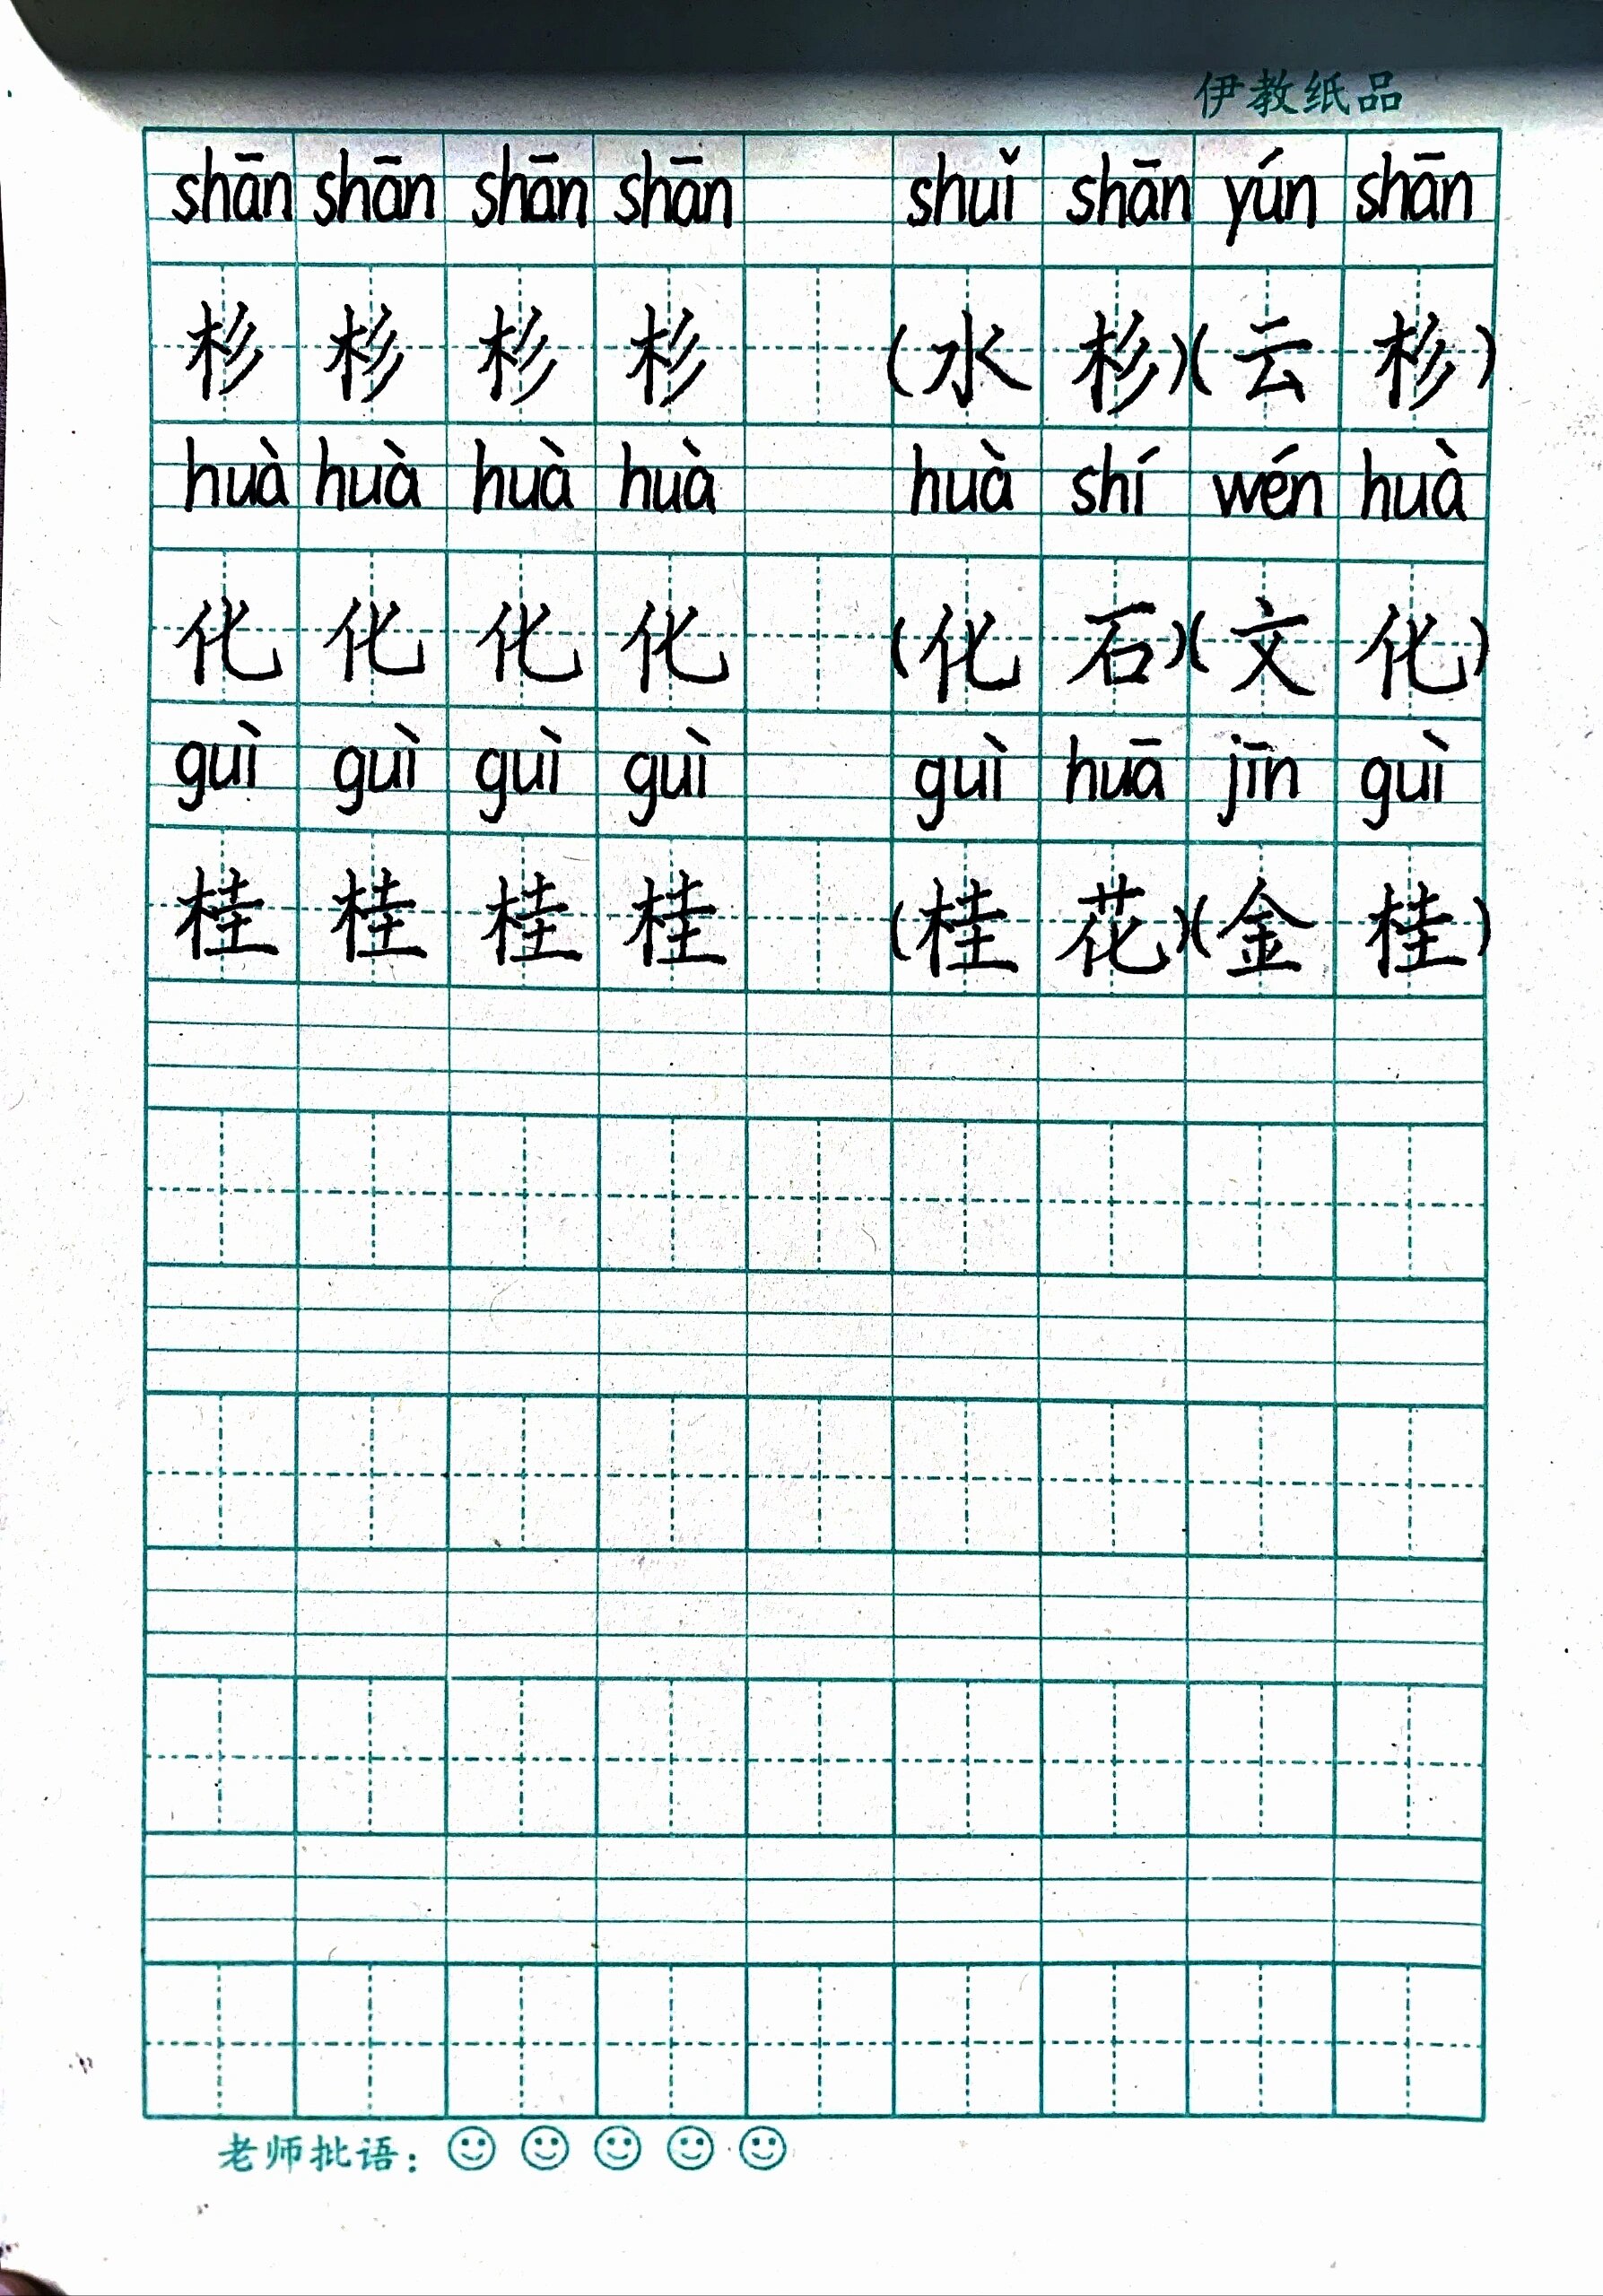 伊教纸品
shān shān shān shān shuǐ shān yún shān
杉 杉 杉 杉 (水 杉)(云 杉)
huà huà huà huà huà shí wén huà
化 化 化 化 (化 石)(文 化)
guì guì guì guì guì huā jīn guì
桂 桂 桂 桂 (桂 花)(金 桂)
老师批语: